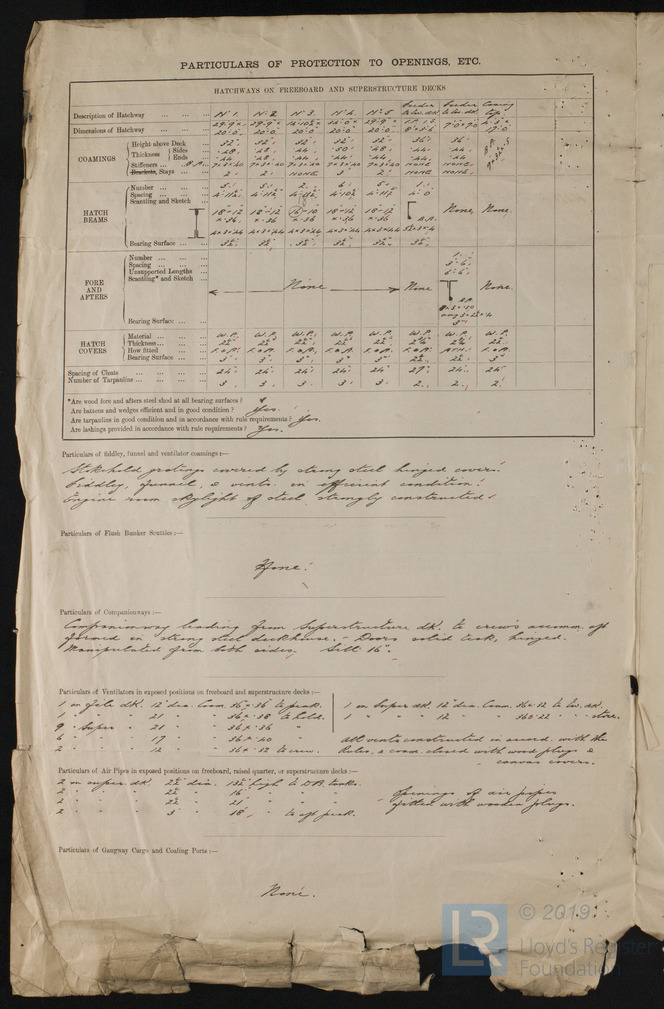 PARTICULARS OF PROTECTION TO OPENINGS, ETC.
HATCHWAYS ON FREEBOARD AND SUPERSTRUCTURE DECKS
Description of Hatchway ... No 1. No 2. No 3. No 4. No 5. Feeder to Tw. dk. Feeder to Tw. dk. Coaming
Dimensions of Hatchway ... 20.0 20.0 20.0 20.0 20.0 7.0 × 7.0 17.0
COAMINGS
Height above Deck ... 32" 32" 32" 32" 32" 36" 36"
Thickness Sides ... .48 .48 .44 .50 .48 .44 .44
Ends ... .44 .44 .44 .44 .44 .44 .44
Stiffeners ... B.P. 7×3×.40 7×3×.40 7×3×.40 7×3×.40 7×3×.40 NONE NONE
Brackets, Stays ... 2 2 NONE 3 2 NONE NONE
HATCH BEAMS
Number ... 5 5 2 6 5 1
Spacing ... 4.11½ 4.11½ 4.10½ 4.11½ 4.0
Scantling and Sketch
18-12 18-12 16-10 18-12 18-12 None, None.
× .36 × .36 × .36 × .36 × .36 B.A.
4×3×.44 4×3×.44 4×3×.44 4×3×.44 4×3×.44
Bearing Surface ... 3½ 3½ 3½ 3½ 3½ 3½
FORE AND AFTERS
Number ... 1
Spacing ... 3.6
Unsupported Lengths
Scantling* and Sketch
None None None.
Bearing Surface ... 3"
HATCH COVERS
Material ... W.P. W.P. W.P. W.P. W.P. W.P. W.P. W.P.
Thickness ... 2½ 2½ 2½ 2½ 2½ 2½ 2½ 2½
How fitted ... F.&A. F.&A. F.&A. F.&A. F.&A. F.&A. ATH. F.&A.
Bearing Surface ... 3" 3" 3" 3" 3" 2½ 2½ 3"
Spacing of Cleats ... 24" 24" 24" 24" 24" 24" 24"
Number of Tarpaulins ... 3 3 3 3 3 2 2 2
*Are wood fore and afters steel shod at all bearing surfaces?
Are battens and wedges efficient and in good condition? Yes.
Are tarpaulins in good condition and in accordance with rule requirements? Yes.
Are lashings provided in accordance with rule requirements? Yes.
Particulars of fiddley, funnel and ventilator coamings :—
Stokehold gratings covered by strong steel hinged covers.
Fiddley, funnel, & vents. in efficient condition.
Engine room skylight of steel strongly constructed.
Particulars of Flush Bunker Scuttles :—
None.
Particulars of Companionways :—
Companionway leading from superstructure dk. to crew's accomm. aft
formed in strong steel deckhouse. - Doors solid teak, hinged.
Manipulated from both sides. Sill 16".
Particulars of Ventilators in exposed positions on freeboard and superstructure decks :—
1 on Fo'cle dk. 12" dia. Coam. 36 × .36 to peak.
1 " " 21 " " 36 × .38 to hold.
9 " Super " 21 " " 36 × .36
6 " " 17 " " 36 × .40
2 " " 12 " " 36 × .32 to crew.
1 on Super dk. 12" dia. Coam. 36 × .32 to Tw. dk.
1 " " 12 " " 36 × .22 " " store.
All vents constructed in accord. with the
Rules, & coam. closed with wood plugs &
canvas covers.
Particulars of Air Pipes in exposed positions on freeboard, raised quarter, or superstructure decks :—
2 on super dk. 2½ dia. 13½ high to D.B. tanks.
2 " " 2½ " 16 " " "
2 " " 2½ " 21 " " "
2 " " 3 " 18 " to aft peak.
Openings of air pipes
fitted with wooden plugs.
Particulars of Gangway Cargo and Coaling Ports :—
None.
LR © 2019
Lloyd's Register
Foundation